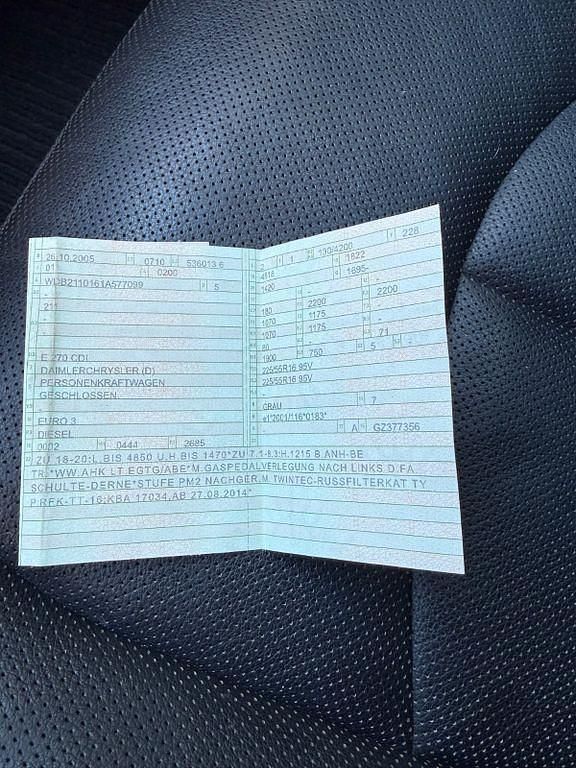 26.10.2005 0710 536013 6
01 0200
WDB2110161A577099 5
-
211
-
-
E 270 CDI
DAIMLERCHRYSLER (D)
PERSONENKRAFTWAGEN
GESCHLOSSEN
EURO 3
DIESEL
0002 0444 2685
2 1 130/4200 228
4818 1822
1420 1695-
- -
180 2200 2200
1070 1175 -
1070 1175 -
80 - 71
1900 750 5 -
225/55R16 95V
225/55R16 95V
-
GRAU 7
e1*2001/116*0183*
A GZ377356
ZU 18-20:L.BIS 4850 U.H.BIS 1470*ZU 7.1-8.3:H.1215 B.ANH-BE
TR.*WW.AHK LT.EGTG/ABE*M.GASPEDALVERLEGUNG NACH LINKS D.FA.
SCHULTE-DERNE*STUFE PM2 NACHGER.M.TWINTEC-RUSSFILTERKAT TY
P RFK-TT-16;KBA 17034,AB 27.08.2014*